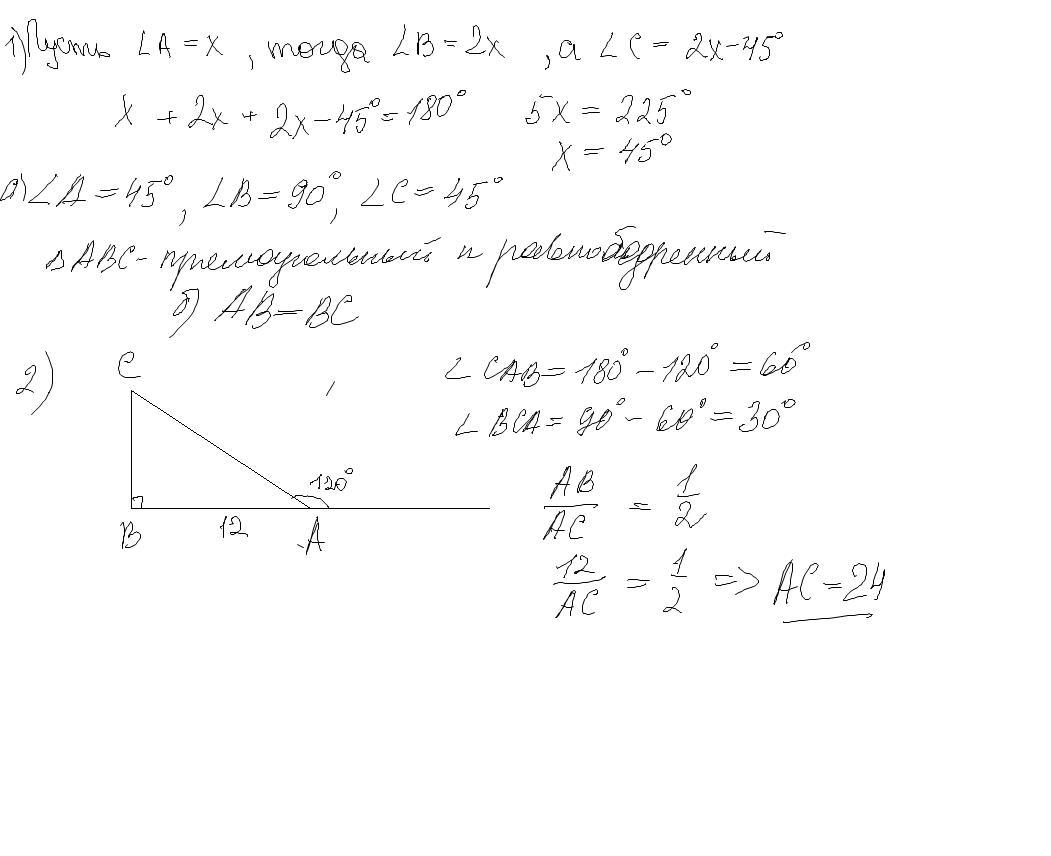 1) Пусть ∠A = x , тогда ∠B = 2x , а ∠C = 2x – 45°
x + 2x + 2x – 45° = 180° 5x = 225°
x = 45°
а) ∠A = 45° , ∠B = 90° , ∠C = 45°
△ABC – прямоугольный и равнобедренный
б) AB = BC
2)
C
120°
B 12 A
∠CAB = 180° – 120° = 60°
∠BCA = 90° – 60° = 30°
AB/AC = 1/2
12/AC = 1/2 => AC = 24